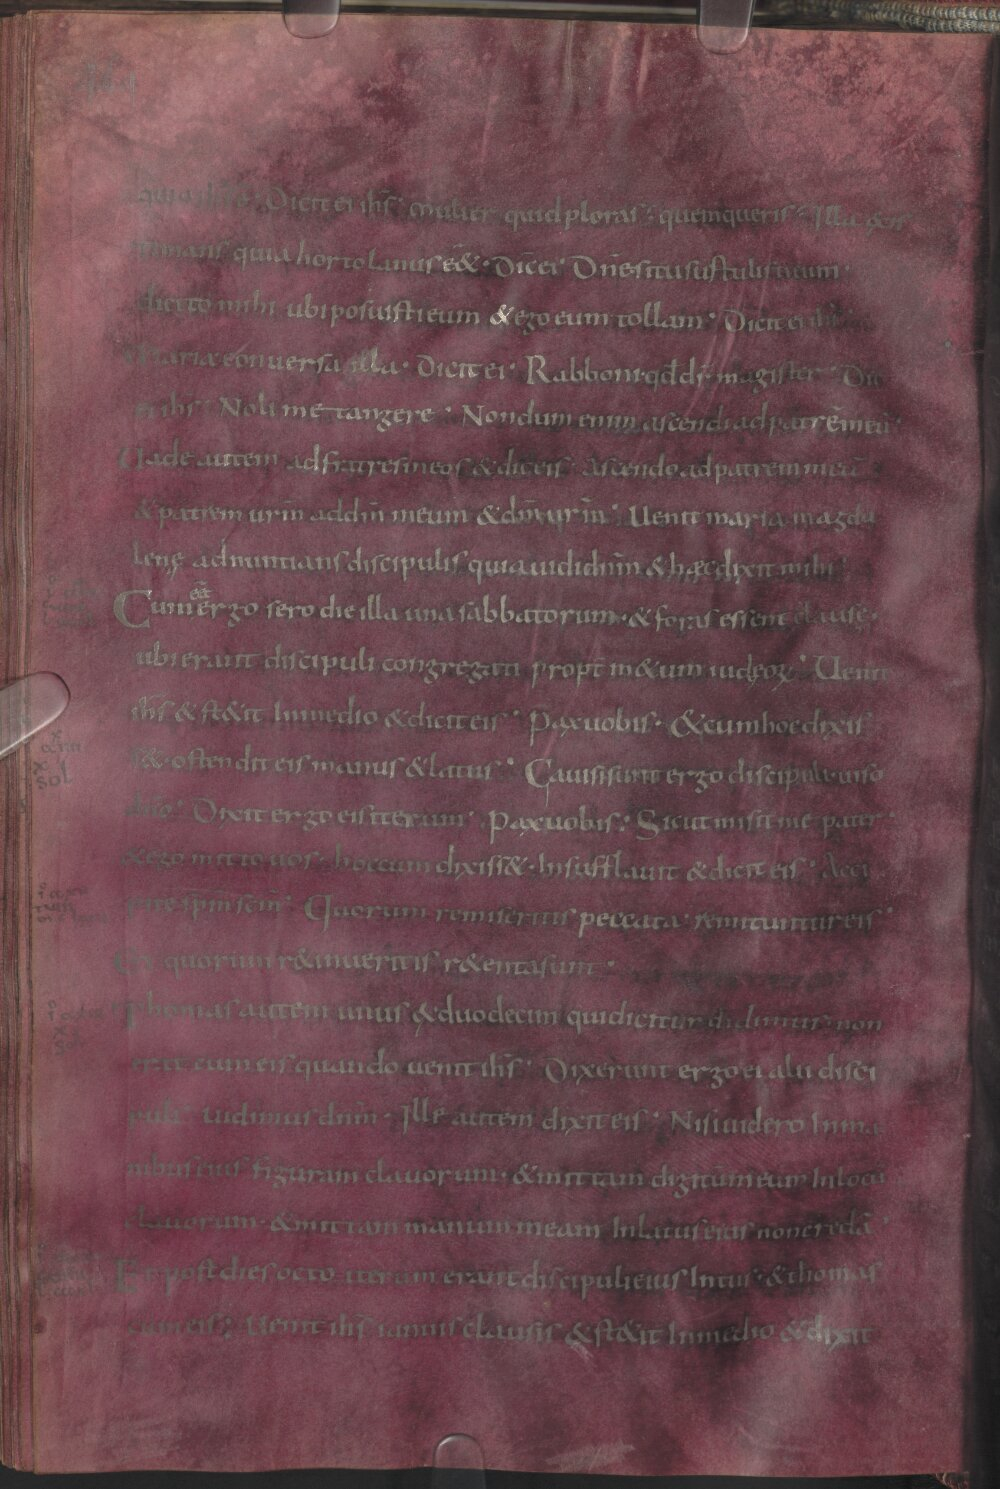 quia ihs est · Dicit ei ihs · mulier quid ploras · quem queris · Illa exis
timans quia hortolanus eēt · Dic̄ ei · Dn̄e si tu sustulisti eum ·
dicito mihi ubi posuisti eum & ego eum tollam · Dicit ei ihs
Maria conversa illa · Dicit ei · Rabboni qd̄ dr̄ magister · Dic̄
ei ihs · Noli me tangere · Nondum enim ascendi ad patrē meū ·
Uade autem ad fratres meos & dic eis · Ascendo ad patrem meū
& patrem urm̄ ad dm̄ meum & dm̄ urm̄ · Uenit maria magda
lene adnuntians discipulis quia uidi dnm̄ & hæc dixit mihi
Cum eēt ergo sero die illa una sabbatorum · & fores essent clause ·
ubi erant discipuli congregati propt̄ m&um iudęoꝝ · Uenit
ihs & st&it In medio & dicit eis · Pax uobis · & cum hoc dixis
s& · ostendit eis manus & latus · Gauisi sunt ergo discipuli uiso
dno · Dixit ergo eis iterum · Pax uobis · Sicut misit me pater ·
& ego mitto uos · hoc cum dixiss& · Insufflauit & dicit eis · Acci
pite sp̄m sc̄m · Quorum remiseritis peccata · remittuntur eis ·
Et quorum r&inueritis r&enta sunt ·
Thomas autem unus & duodecim qui dicitur didimus · non
erat cum eis quando uenit ihs · Dixerunt ergo ei alii disci
puli · Uidimus dnm̄ · Ille autem dixit eis · Nisi uidero In ma
nibus eius figuram clauorum · & mittam digitū meum In locū
clauorum · & mittam manum meam In latus eius non credā ·
Et post dies octo iterum erant discipuli eius Intus · & thomas
cum eis · Uenit ihs ianuis clausis & st&it In medio & dixit